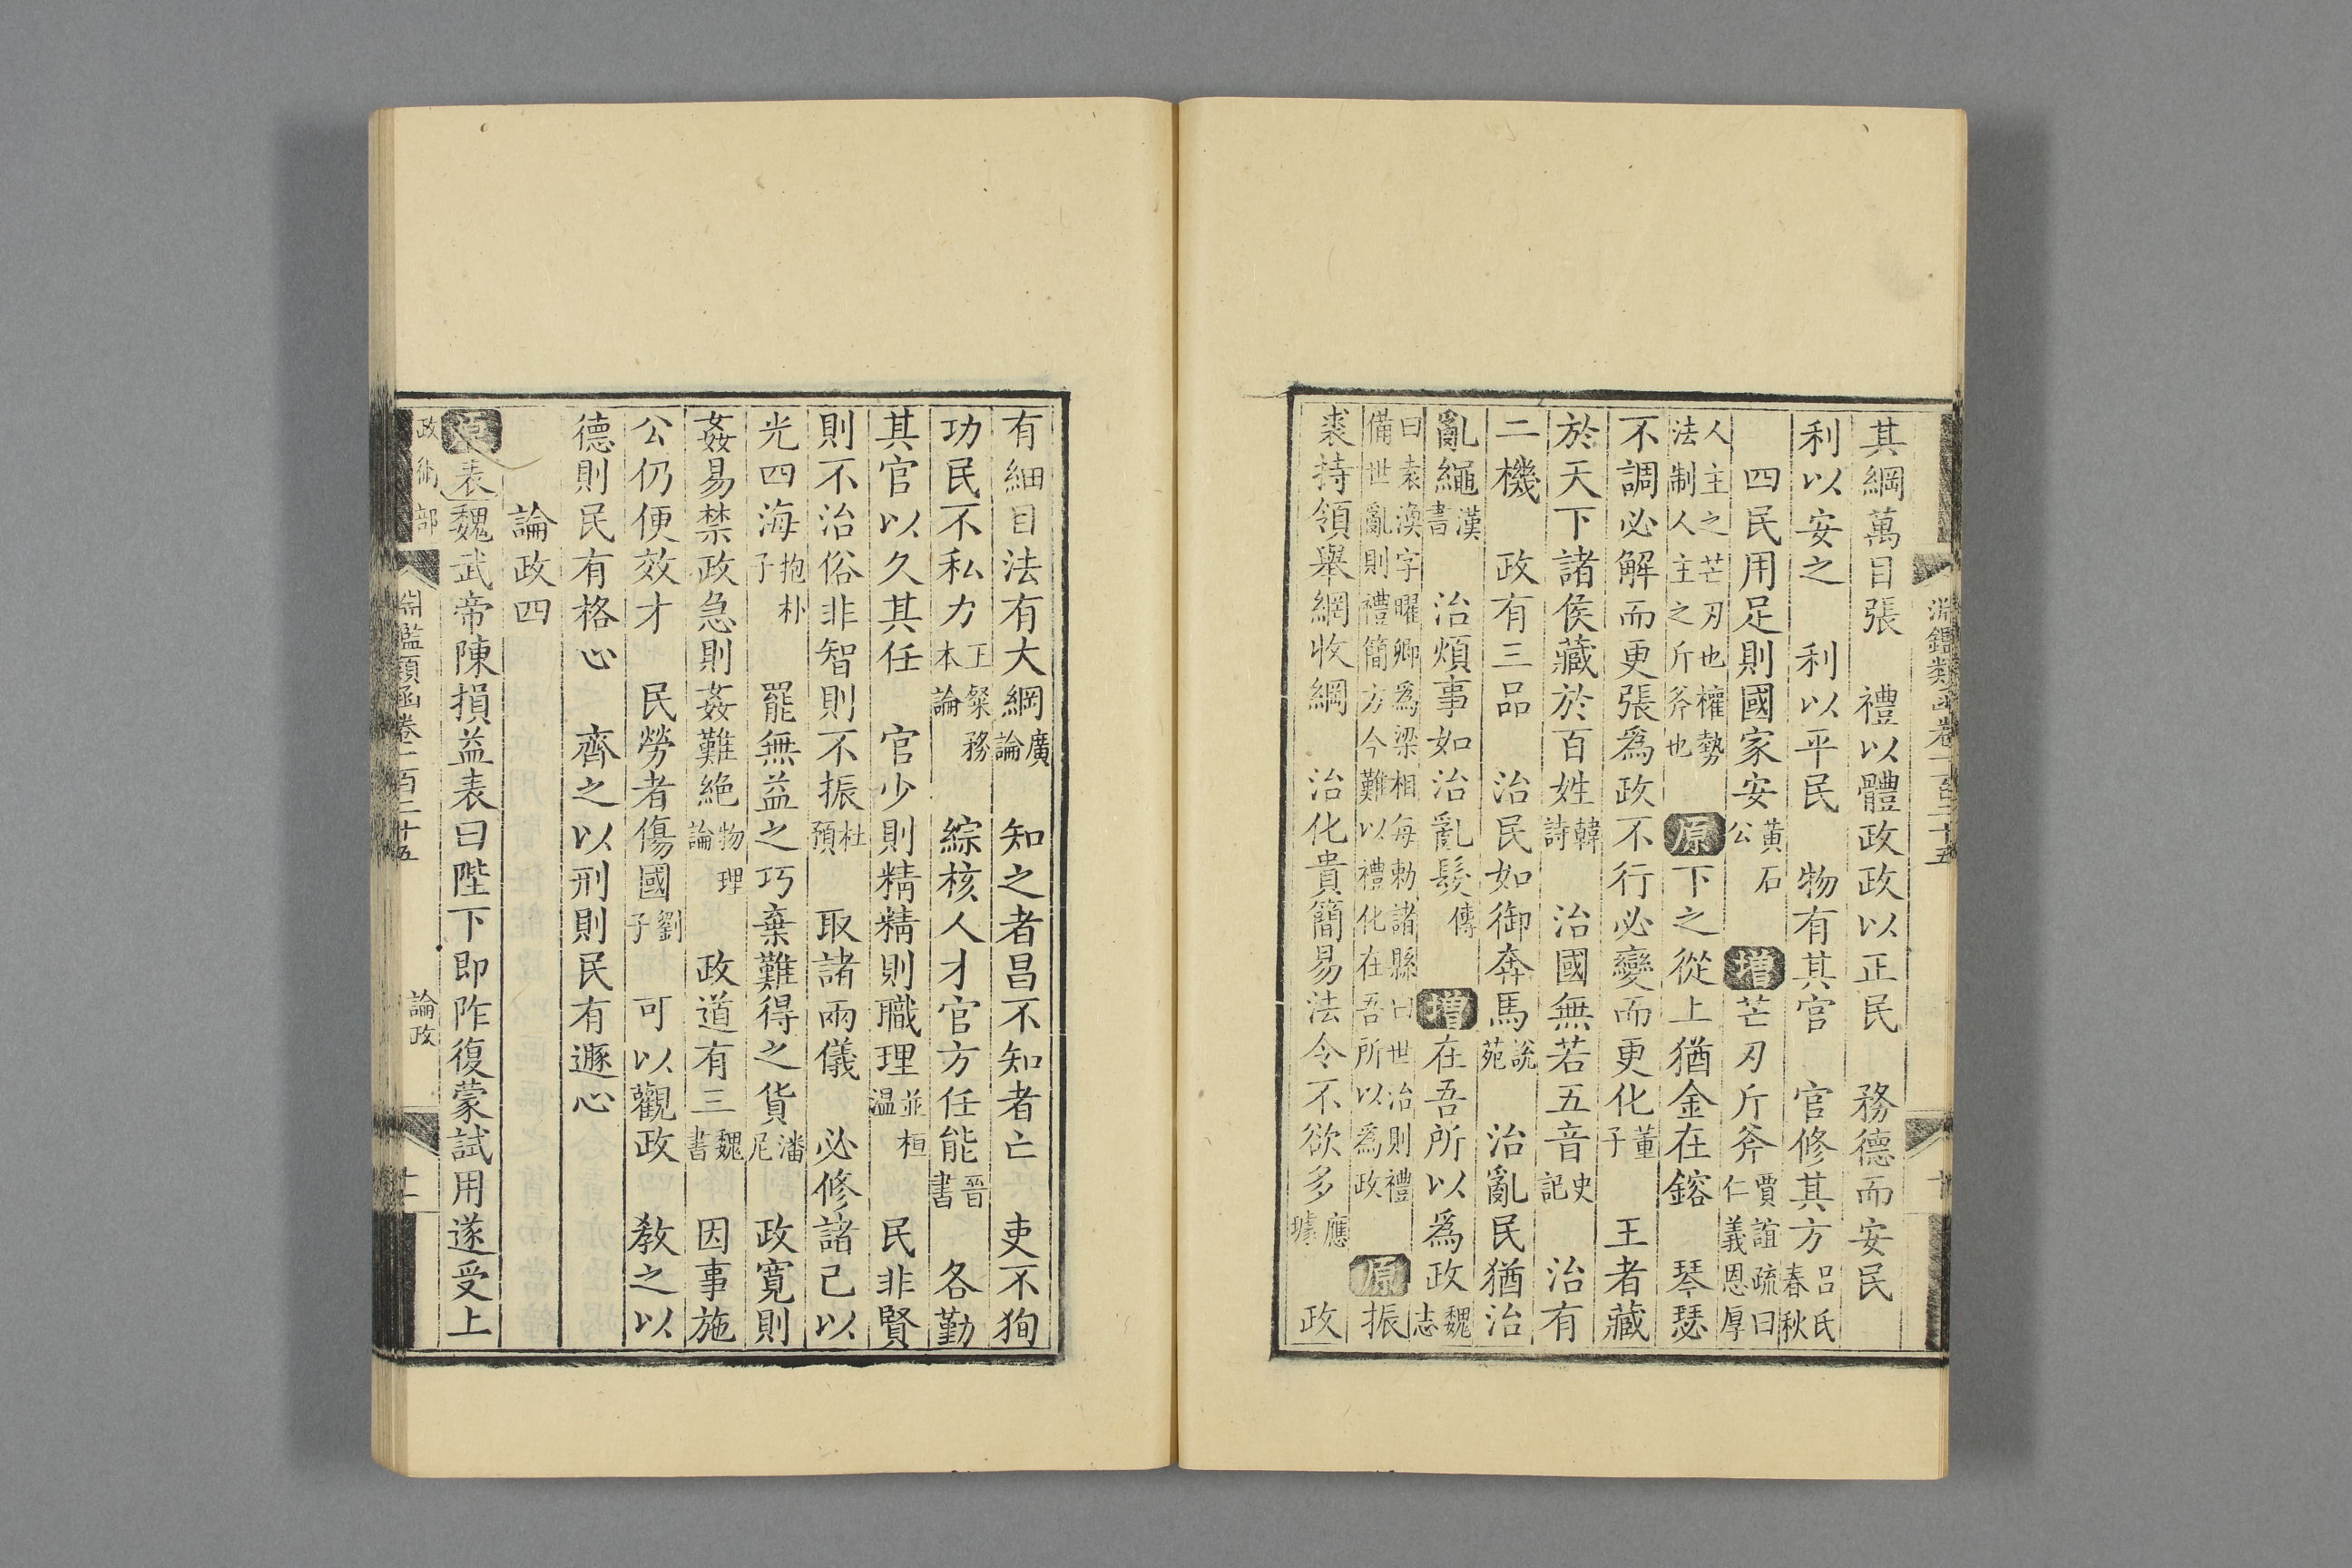 淵鑑類函卷一百二十五
其綱萬目張　禮以體政政以正民　務德而安民
利以安之　利以平民　物有其官　官修其方呂氏春秋
四民用足則國家安黃石公　增芒刃斤斧賈誼疏曰仁義恩厚
人主之芒刃也權勢法制人主之斤斧也　原下之從上猶金在鎔　琴瑟
不調必解而更張爲政不行必變而更化董子　王者藏
於天下諸侯藏於百姓韓詩　治國無若五音史記　治有
二機　政有三品　治民如御奔馬說苑　治亂民猶治
亂繩漢書　治煩事如治亂髮傳　增在吾所以爲政魏志
曰袁渙字曜卿爲梁相每勅諸縣曰世治則禮備世亂則禮簡方今難以禮化在吾所以爲政　原振
裘持領舉網收綱　治化貴簡易法令不欲多應璩　政
有細目法有大綱廣論　知之者昌不知者亡　吏不狥
功民不私力王粲務本論　綜核人才官方任能晉書　各勤
其官以久其任　官少則精精則職理並桓温　民非賢
則不治俗非智則不振杜預　取諸兩儀　必修諸己以
光四海抱朴子　罷無益之巧棄難得之貨潘尼　政寛則
姦易禁政急則姦難絶物理論　政道有三魏書　因事施
公仍便效才　民勞者傷國劉子　可以觀政　教之以
德則民有格心　齊之以刑則民有遯心
論政四
原表魏武帝陳損益表曰陛下即阼復蒙試用遂受上
政術部　淵鑑類函卷一百二十五　論政　十一